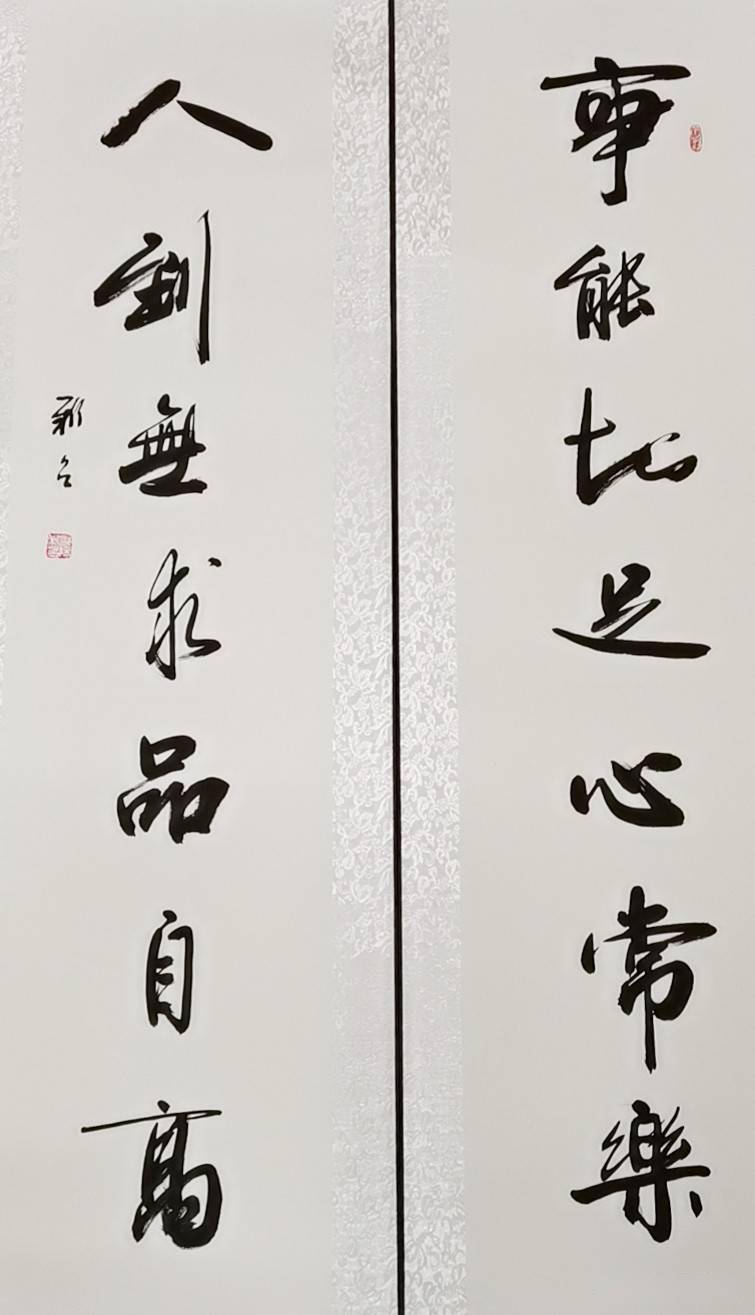 事能知足心常樂
人到無求品自高